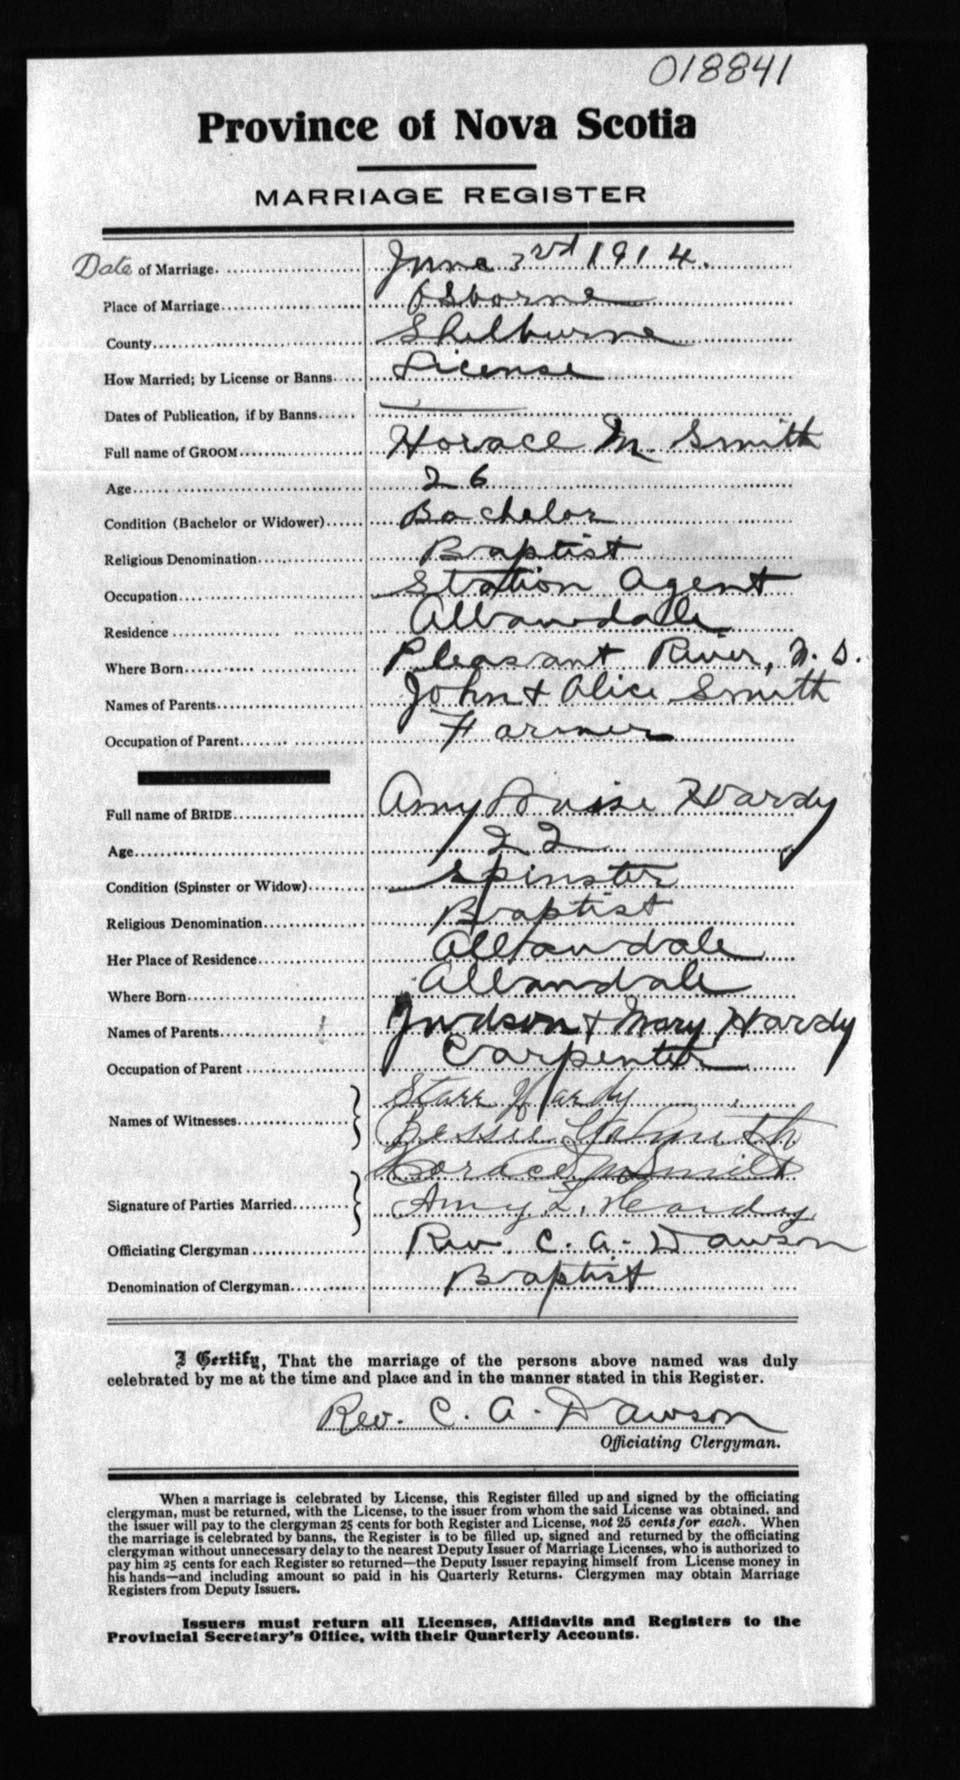 018841
Province of Nova Scotia
MARRIAGE REGISTER
Date of Marriage. June 3rd 1914.
Place of Marriage Osborne
County Shelburne
How Married; by License or Banns License
Dates of Publication, if by Banns
Full name of GROOM Horace M. Smith
Age 26
Condition (Bachelor or Widower) Bachelor
Religious Denomination Baptist
Occupation Station Agent
Residence Allandale
Where Born Pleasant River, N. S.
Names of Parents John & Alice Smith
Occupation of Parent Farmer
Full name of BRIDE Amy Louise Hardy
Age 22
Condition (Spinster or Widow) Spinster
Religious Denomination Baptist
Her Place of Residence Allandale
Where Born Allandale
Names of Parents Judson & Mary Hardy
Occupation of Parent Carpenter
Names of Witnesses Starr Hardy
Bessie Smith
Signature of Parties Married Horace M Smith
Amy L. Hardy
Officiating Clergyman Rev. C. A. Dawson
Denomination of Clergyman Baptist
I Certify, That the marriage of the persons above named was duly
celebrated by me at the time and place and in the manner stated in this Register.
Rev. C. A. Dawson
Officiating Clergyman.
When a marriage is celebrated by License, this Register filled up and signed by the officiating
clergyman, must be returned, with the License, to the issuer from whom the said License was obtained, and
the issuer will pay to the clergyman 25 cents for both Register and License, not 25 cents for each. When
the marriage is celebrated by banns, the Register is to be filled up, signed and returned by the officiating
clergyman without unnecessary delay to the nearest Deputy Issuer of Marriage Licenses, who is authorized to
pay him 25 cents for each Register so returned—the Deputy Issuer repaying himself from License money in
his hands—and including amount so paid in his Quarterly Returns. Clergymen may obtain Marriage
Registers from Deputy Issuers.
Issuers must return all Licenses, Affidavits and Registers to the
Provincial Secretary's Office, with their Quarterly Accounts.